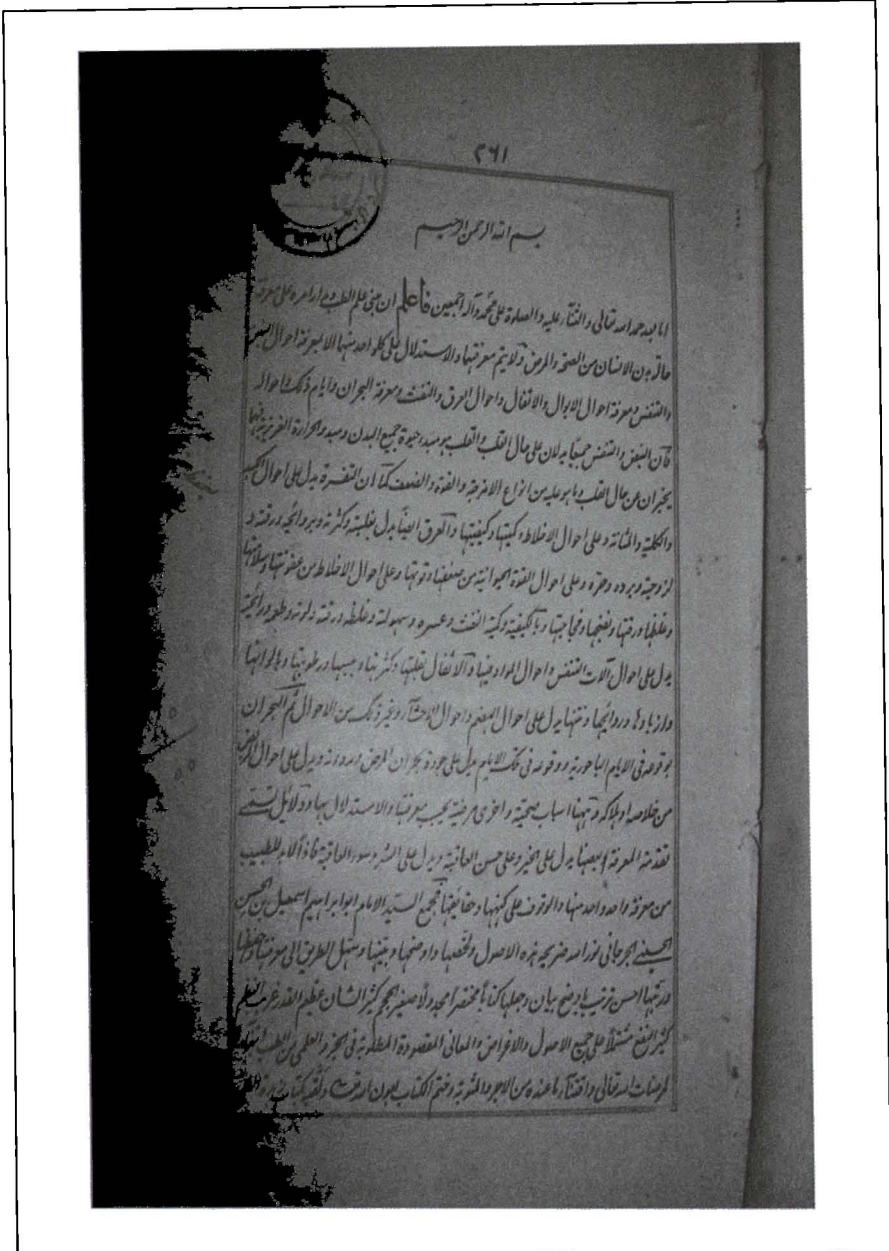 ٢٦١
بسم الله الرحمن الرحيم
اما بعد حمد الله تعالى والثناء عليه والصلوة على محمد وآله اجمعين فاعلم ان مبنى علم الطب ومدار امره على معرفة
حالة بدن الانسان من الصحة والمرض ولا يتم معرفتها والاستدلال على كلواحد منها الا بمعرفة احوال النبض
والتنفس ومعرفة احوال الابوال والاثفال واحوال العرق والنفث ومعرفة البحران وايام ذلك واحواله
فان النبض والتنفس جميعا يدلان على حال القلب والقلب هو مبدء حيوة جميع البدن ومبدء الحرارة الغريزية فهما
يخبران عن حال القلب وما هو عليه من انواع الامزجة والقوة والضعف كما ان التفسرة يدل على احوال الكبد
والكلية والمثانة وعلى احوال الاخلاط وكميتها وكيفيتها والعرق ايضا يدل بغلبته وكثرته وبروائحه ورقته و
لزوجته وبرده وحره وعلى احوال القوة الحيوانية من ضعفها وقوتها وعلى احوال الاخلاط من عفونتها وسلامتها
وغلظها ورقتها ونضجها وفجاجتها وبالكيفية وكمية النفث وعسره وسهولته وغلظه ورقته ولونه وطعمه ورائحته
يدل على احوال آلات التنفس واحوال المواد فيها والاثفال بقلتها وكثرتها ويبسها ورطوبتها وبالوانها
وازبادها وروائحها ونتنها يدل على احوال الهضم واحوال الاحشاء وغير ذلك من الاحوال ثم البحران
بوقوعه فى الايام الباحورية ووقوعه فى تلك الايام يدل على جودة بحران المرض ورداءته ويدل على احوال المريض
من خلاصه او هلاكه وههنا اسباب صحية واخرى مرضية يجب معرفتها والاستدلال بها ودلائل تسمى
تقدمة المعرفة بعضها يدل على الخير وعلى حسن العاقبة ويدل على الشر وسوء العاقبة فاذا لابد للطبيب
من معرفة واحد واحد منها والوقوف على كنهها وحقائقها فجمع السيد الامام ابو ابراهيم اسمعيل بن الحسن
الحسينى الجرجانى نور الله ضريحه هذه الاصول ولخصها واوضحها وبينها وسهل الطريق الى معرفتها وحفظها
ورتبها احسن ترتيب باوضح بيان وجعلها كتابا مختصرا مجدولا صغير الحجم كثير الشان عظيم القدر غريب النظم
كثير النفع مشتملا على جميع الاصول والاغراض والمعانى المقصودة المطلوبة فى الجزء العلمى من الطب ابتغاء
لمرضات الله تعالى واقتناء ما عنده من الاجر والمثوبة وختم الكتاب بعون الله ولقبه بكتاب